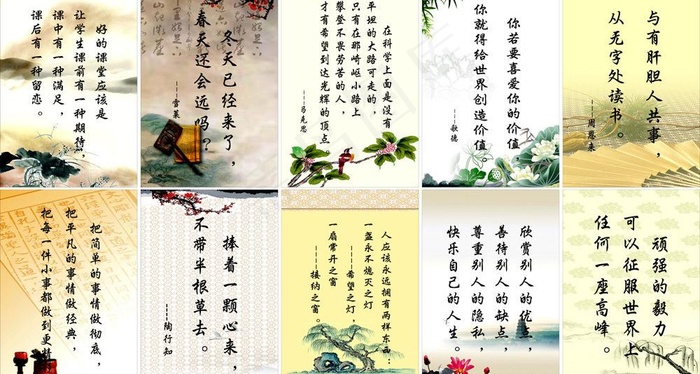 好的课堂应该是
让学生课前有一种期待，
课中有一种满足，
课后有一种留恋。
冬天已经来了，
春天还会远吗？
----雪莱
在科学上面是没有
平坦的大路可走的，
只有在那崎岖小路上
攀登不畏劳苦的人，
才有希望到达光辉的顶点
----马克思
你若要喜爱你的价值
你就得给世界创造价值。
----歌德
与有肝胆人共事，
从无字处读书。
----周恩来
把简单的事情做彻底，
把平凡的事情做经典，
把每一件小事都做到更精
捧着一颗心来，
不带半根草去。
----陶行知
人应该永远拥有两样东西：
一盏永不熄灭之灯
----希望之灯，
一扇常开之窗
----接纳之窗。
欣赏别人的优点，
善待别人的缺点，
尊重别人的隐私，
快乐自己的人生。
顽强的毅力
可以征服世界上
任何一座高峰。